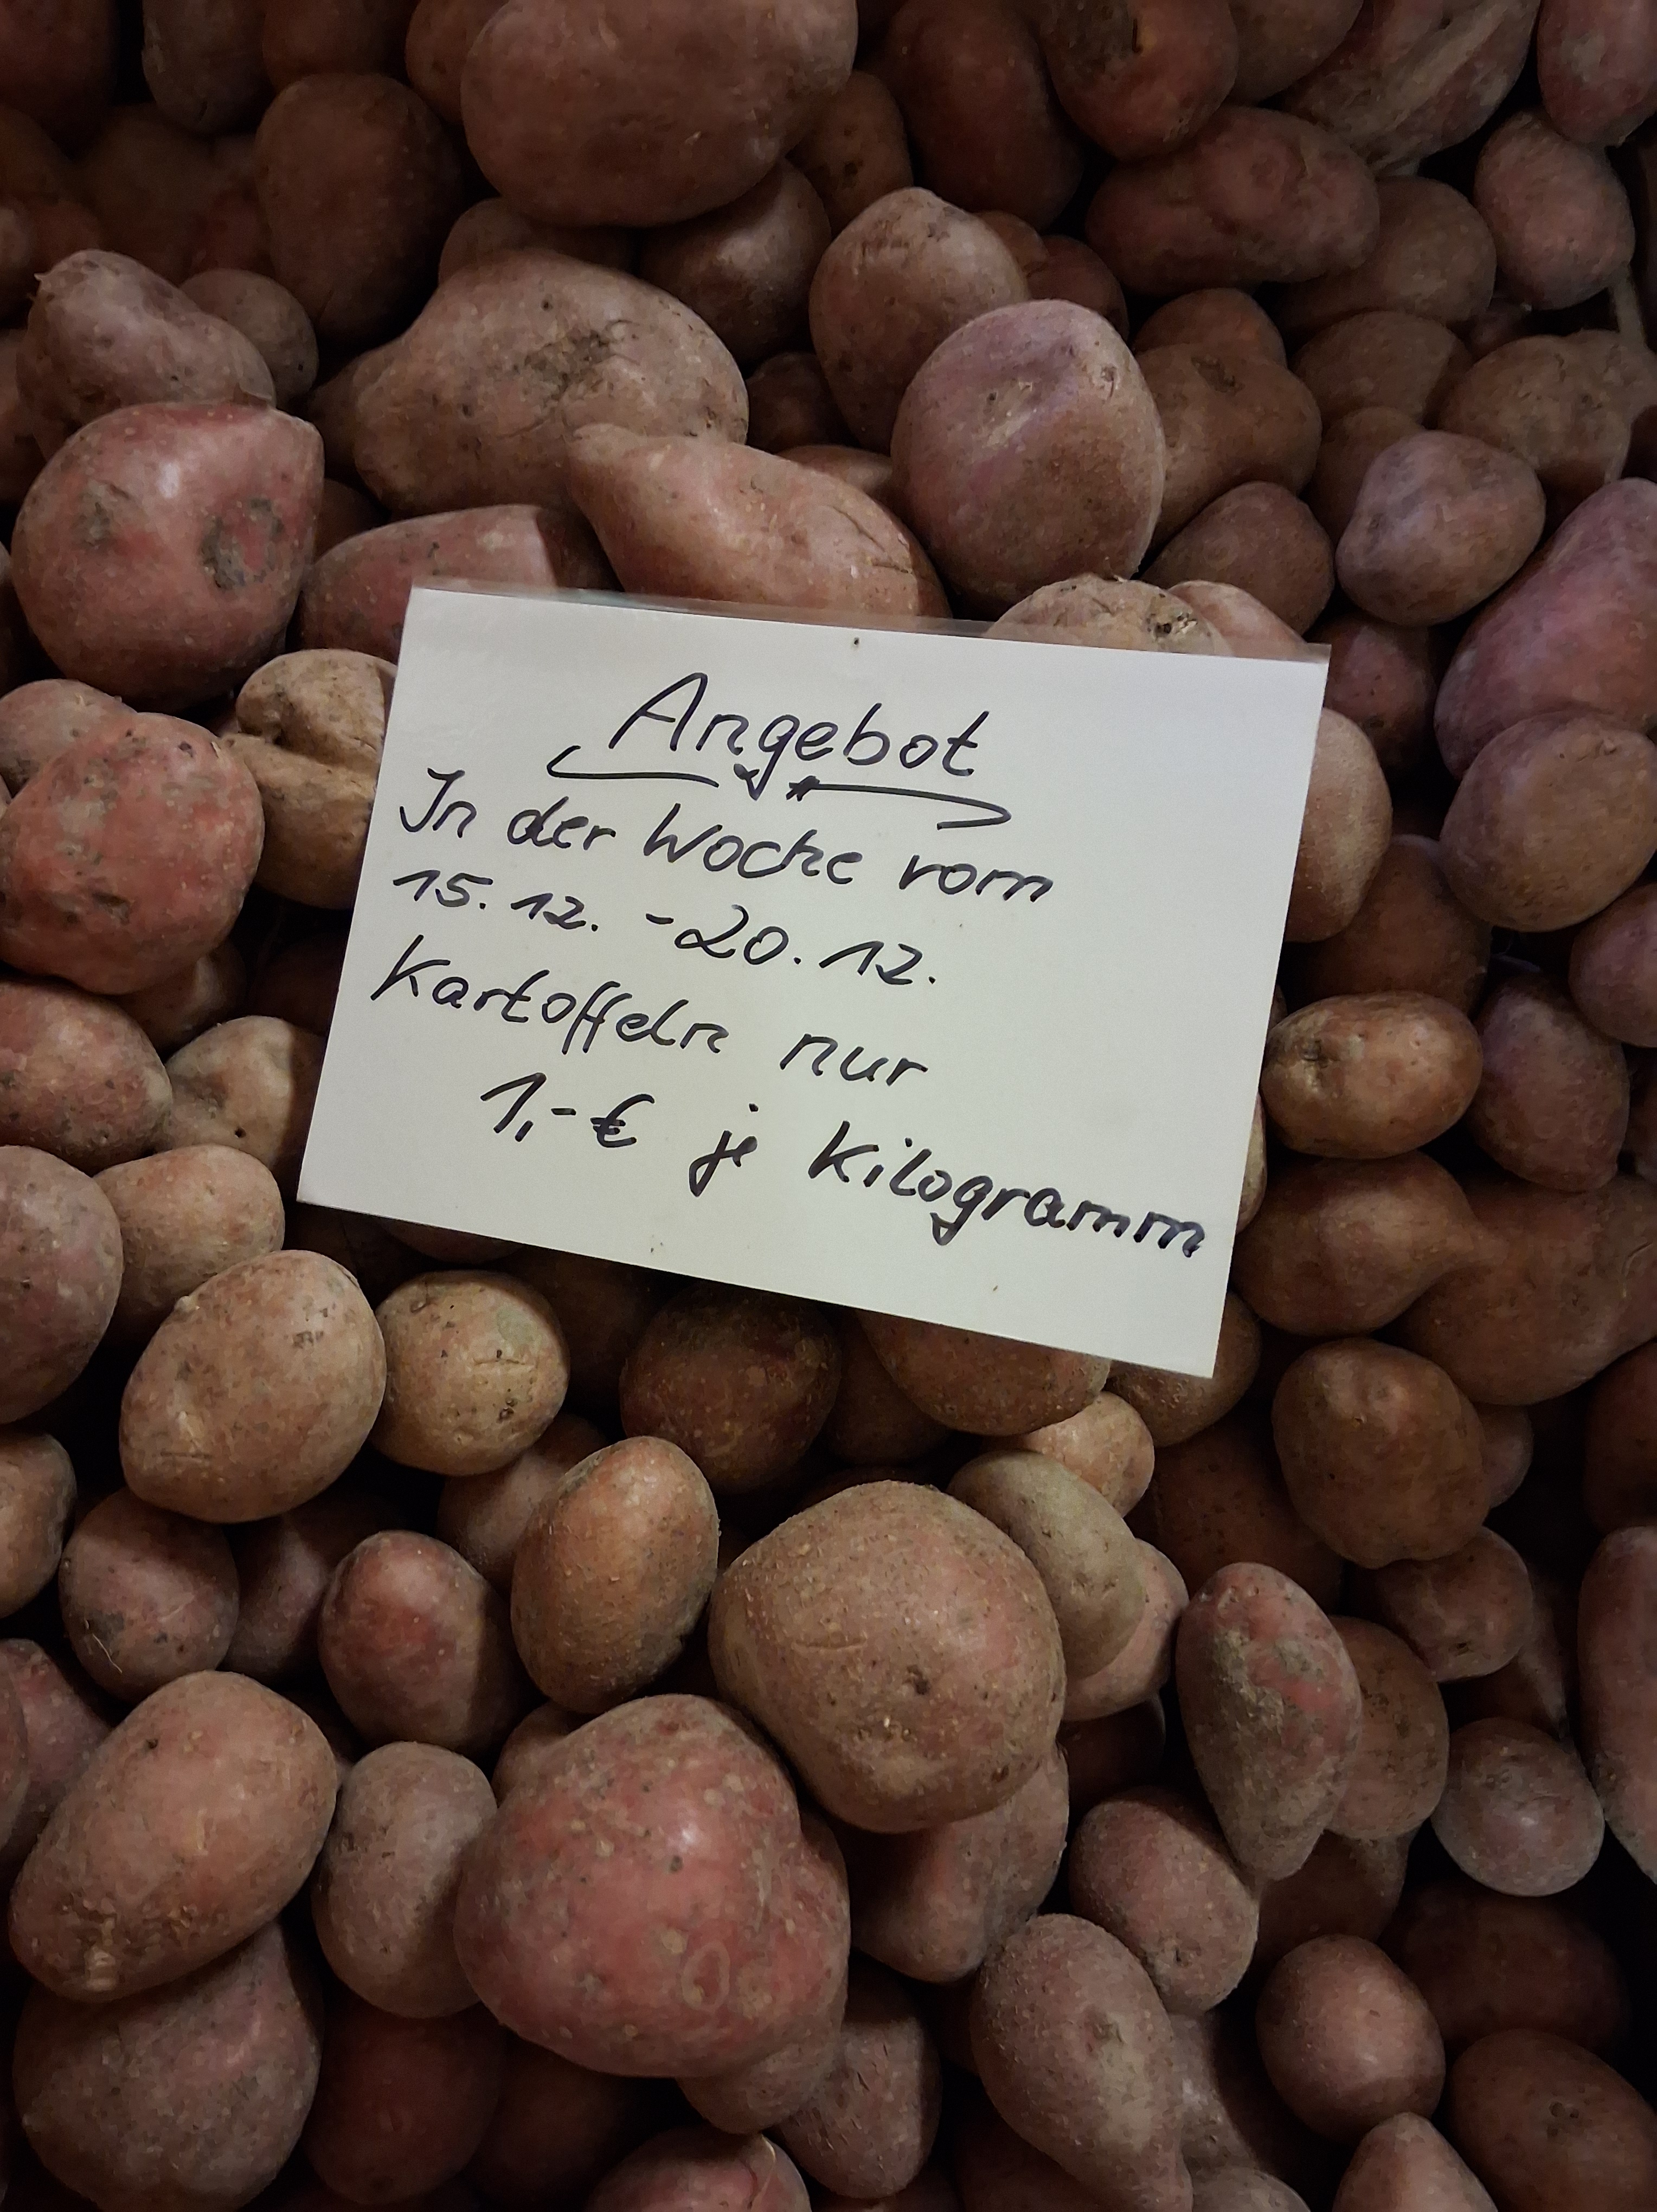 Angebot
In der Woche vom
15.12. - 20.12.
Kartoffeln nur
1,- € je Kilogramm